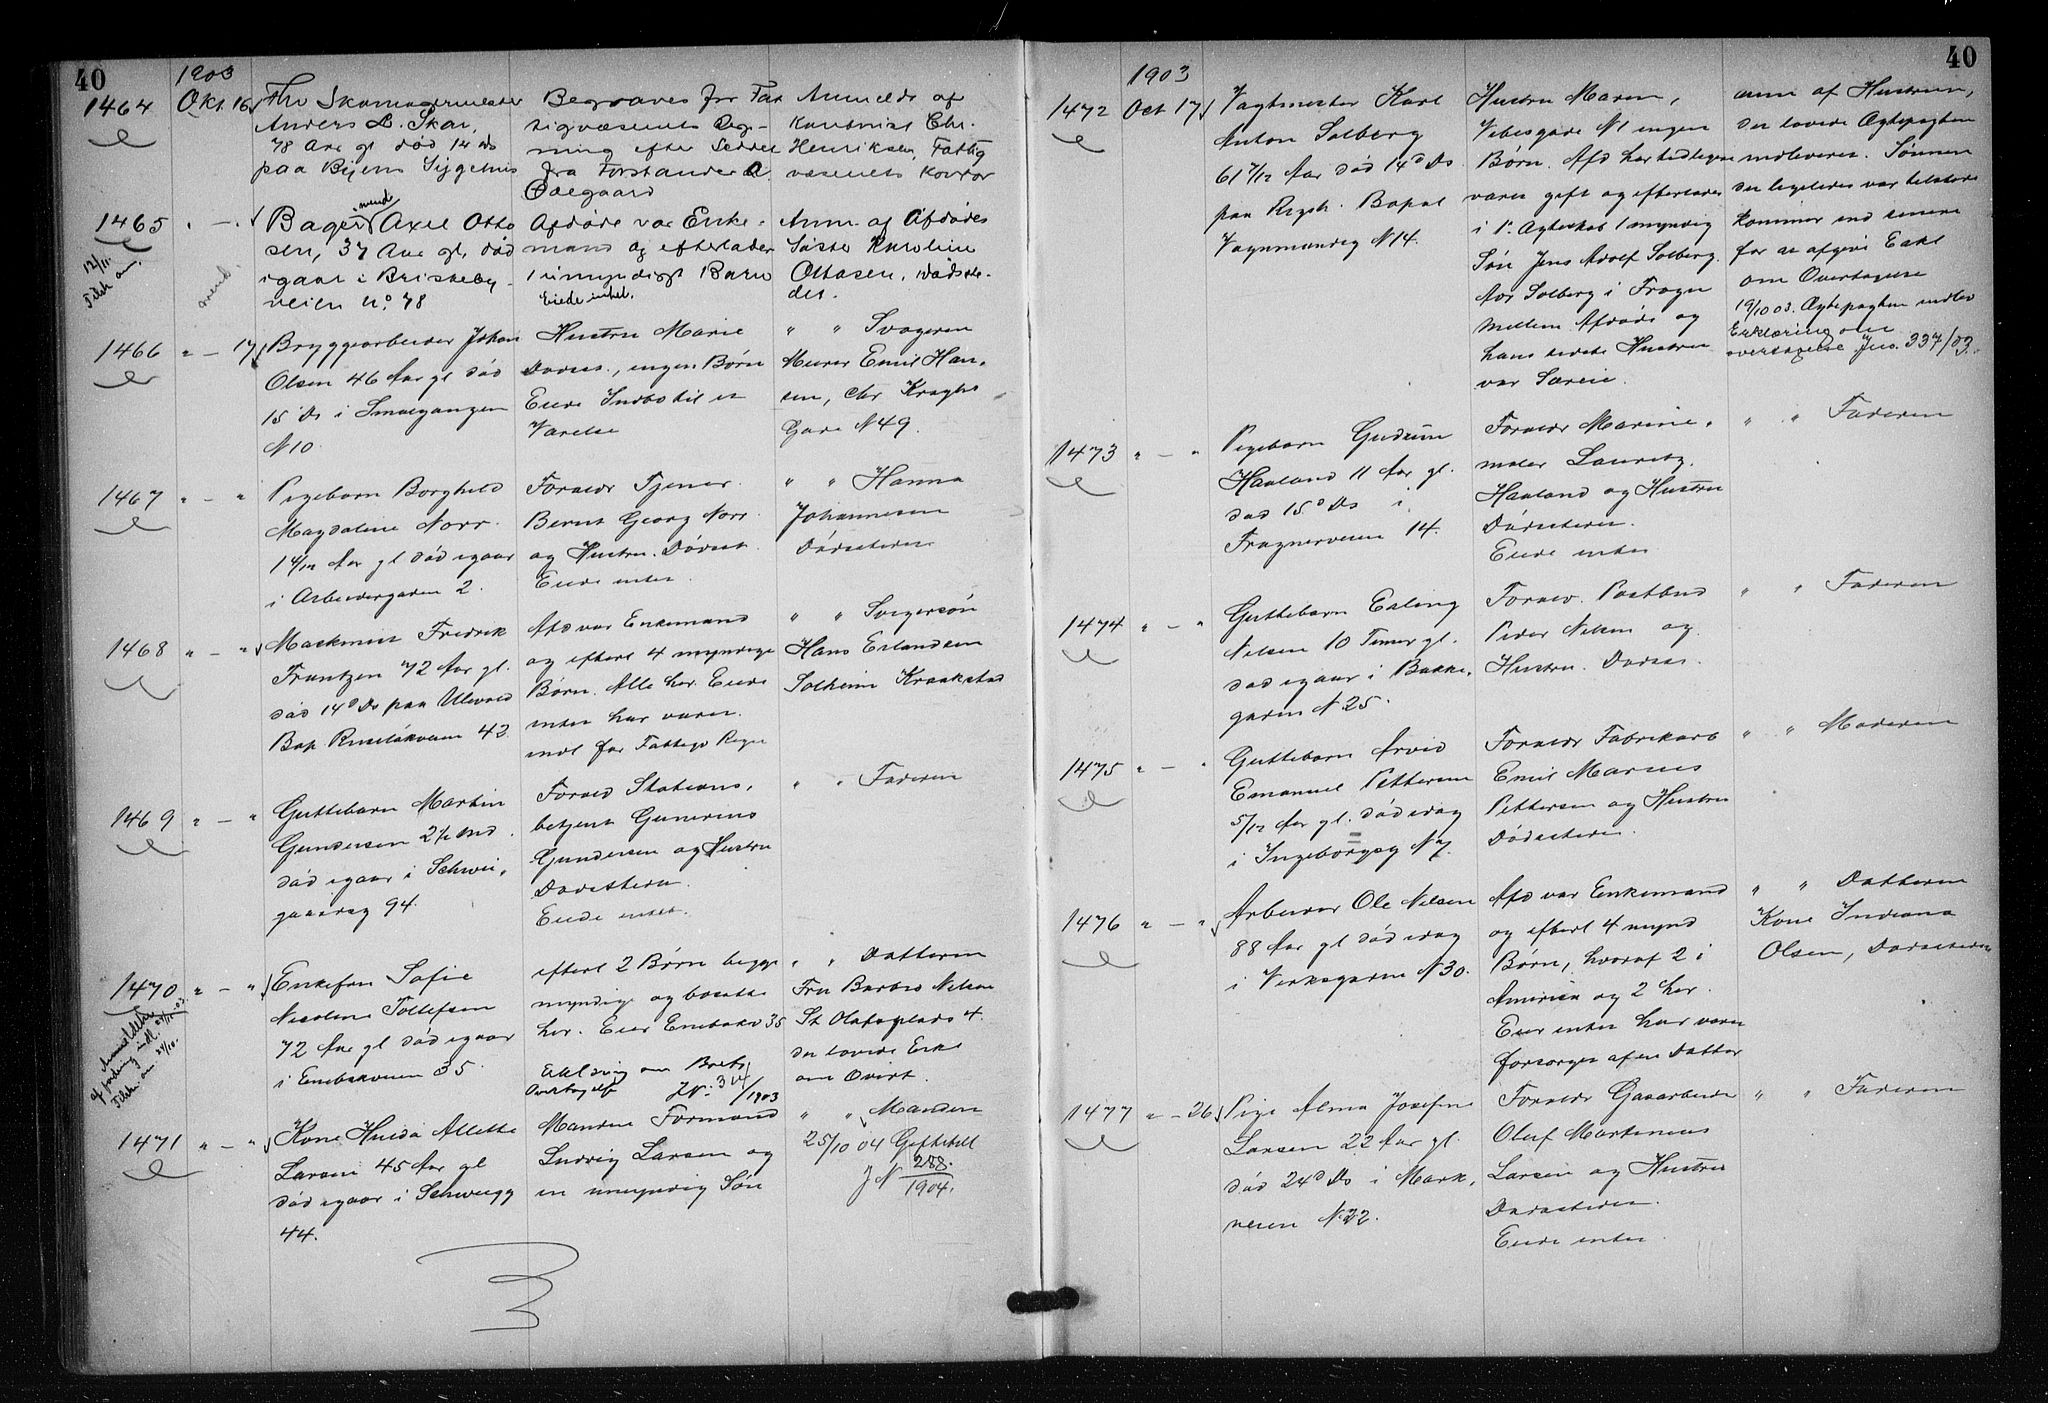 40
1903
1464 Okt. 16 Fhv Skomagermester
Anders B. Skar,
78 Aar gl død 14 ds
paa Byens Sygehus
Begraves for Fat
tigvæsenets Reg-
ning efter Seddel
fra Forstander A.
Odegaard
Anmeldt af
Kontorist Chr.
Henriksen, Fattig
væsenets Kontor
1465 " - " Bagersvend Axel Otto
sen, 37 Aar gl, død
igaar i Briskeby-
veien No 78
12/11
Tilsk. om.
Afdøde var Enke-
mand og efterlader
1 umyndigt Barn
Eiede intet.
Anm. af Afdødes
Søster Karoline
Ottosen, Dødsste-
det.
1466 " - 17 Bryggearbeider Johan
Olsen 46 Aar gl død
15 Ds i Smalgangen
N 10.
Hustru Marie
Dødsst., ingen Børn
Eiede Indbo til et
Værelse
" " Svogeren
Murer Emil Han,
sen, Chr Kroghs
Gade N 49.
1467 " - " Pigebarn Borghild
Magdaline Norr.
1 4/12 Aar gl død igaar
i Arbeidergaden 2.
Forældr Tjener
Bernt Georg Norr
og Hustru. Dødsst.
Eiede intet.
" " Hanna
Johannesen
Dødsstedet
1468 " - " Maskinist Fredrik
Frantzen 72 Aar gl.
død 14d Ds paa Ullevold
Bop Ruseløkveien 42
Afd var Enkemand
og efterl 4 myndige
Børn. Alle her. Eiede
intet har været
indl for Fattigv Regn
" " Svigersøn
Hans Erlandsen
Solheim Kraakstad
1469 " - " Guttebarn Martin
Gundersen 2 1/2 Md
død igaar i Schwei,
gaardsg 94.
Foræld Stations,
betjent Gunerius
Gundersen og Hustru
Dødsstedet.
Eiede intet.
" " Faderen
1470 " - " Enkefru Sofie
Nicoline Tollefsen
72 Aar gl død igaar
i Enebakveien 35.
Tilsk. om 24/10.
efterl 2 Børn begge
myndige og bosatte
her. Eier Enebakv 35
Erklæring om Boets
Overtagelse JN: 314/1903
" " Datteren
Fru Barbro Nilsen
St Olafsplads 4.
der lovede Erkl
om Overt.
1471 " - " Kone Hulda Alette
Larsen 45 Aar gl
død igaar i Schweigg
44.
Manden Formand
Ludvig Larsen og
en umyndig Søn
" " Manden
25/10 04 Giftetill
JN 288./1904.
40
1903
1472 Oct 17 Vagtmester Karl
Anton Solberg
61 7/12 Aar død 14d Ds
paa Rigsh. Bopæl
Vognmandsg N 14.
Hustru Maren,
Vibesgade N 1 ingen
Børn. Afd har tidligere
været gift og efterlader
i 1ste Ægteskab 1 myndig
Søn Jens Adolf Solberg.
Aar Solberg i Frogn
Mellem Afdøde og
hans sidste Hustru
var Særeie.
anm af Hustruen,
der lovede Ægtepagten
indleveret. Sønnen
der ligeledes var tilstede
kommer ind senere
for at afgive Erkl
om Overtagelse
19/10 03. Ægtepagten indlev
Erklæring om
overtagelse Jno. 337/03.
1473 " - " Pigebarn Gudrun
Haaland 11 Aar gl.
død 15d Ds i
Frognerveien 14.
Forældr Marine,
maler Lauritz
Haaland og Hustru
Dødsstedet.
Eiede intet
" " Faderen
1474 " - " Guttebarn Erling
Nilsen 10 Timer gl.
død igaar i Bakke,
gaden N 25.
Foræld. Postbud
Peder Nilsen og
Hustru. Dødsst.
" " Faderen
1475 " - " Guttebarn Arvid
Emanuel Pettersen
5/12 Aar gl. død idag
i Ingeborgsg N 7
Forældr Fabrikarb
Emil Marius
Pettersen og Hustru
Dødsstedet.
" " Moderen
1476 " - " Arbeider Ole Nilsen
88 Aar gl død idag
i Verksgaden N 30.
Afd var Enkemand
og efterl 4 mynd
Børn, hvoraf 2 i
Amerika og 2 her.
Eier intet har været
forsørget af en Datter
" " Datteren
Kone Indiana
Olsen, Dødsstedet
1477 " - 26 Pige Alma Josefine
Larsen 22 Aar gl.
død 24d Ds i Mark,
veien N 22.
Forældr Gasarbeider
Oluf Martinius
Larsen og Hustru
Dødsstedet.
Eiede intet
" " Faderen